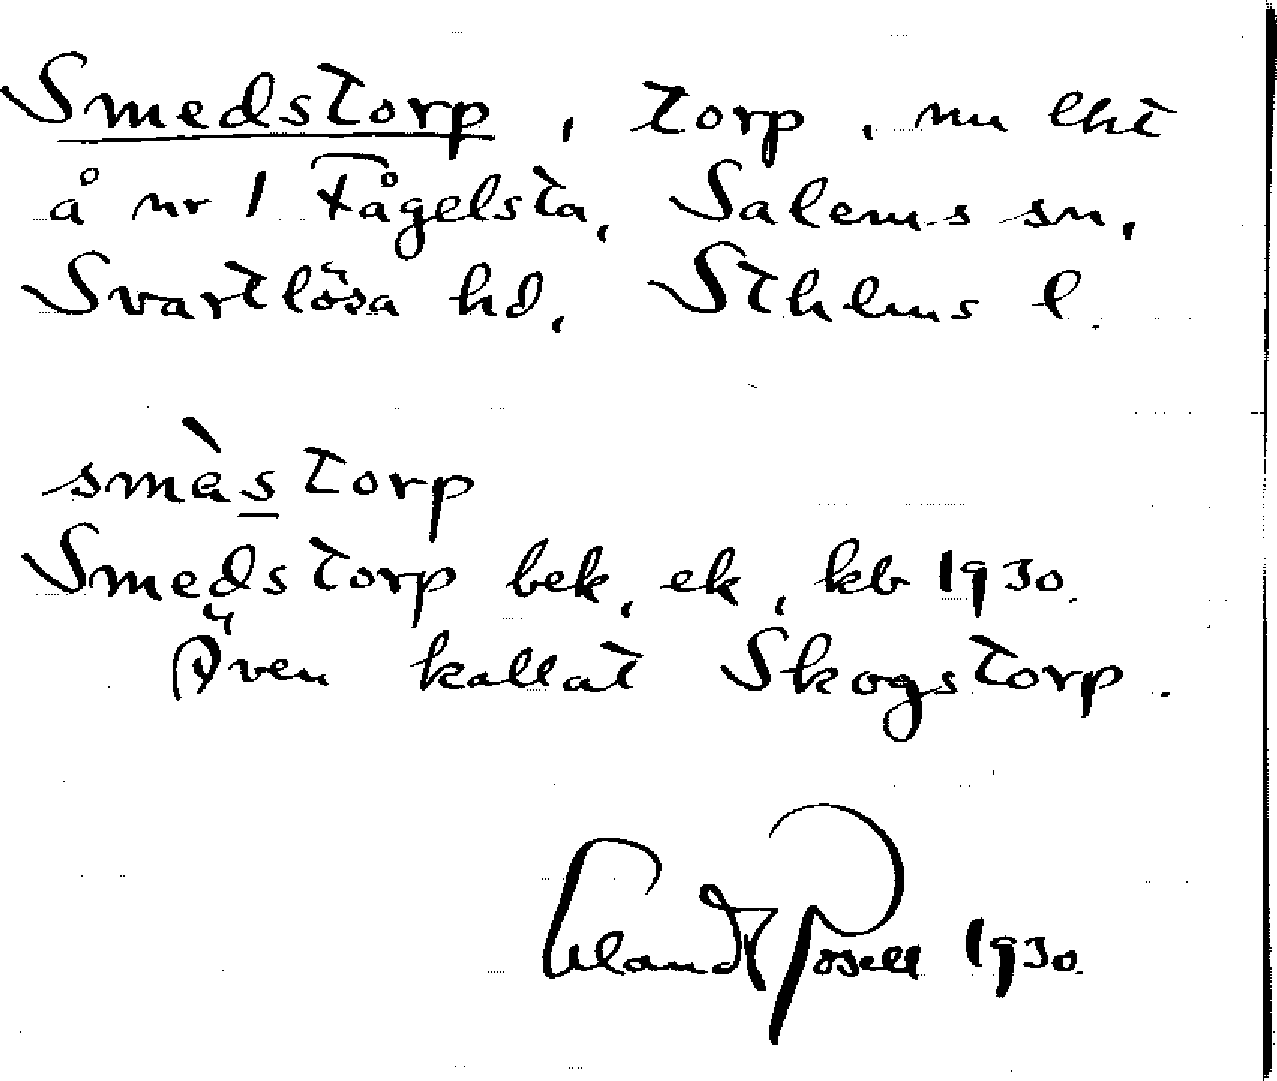 Smedstorp, torp, nu lht
å nr 1 Fågelsta, Salems sn,
Svartlösa hd, Sthlms l.
smàstorp
Smedstorp bek, ek, kb 1930.
Även kallat Skogstorp.
Erland Rosell 1930.